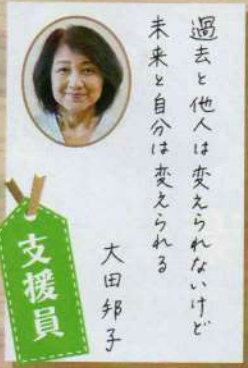 過去と他人は変えられないけど
未来と自分は変えられる
大田邦子
支援員